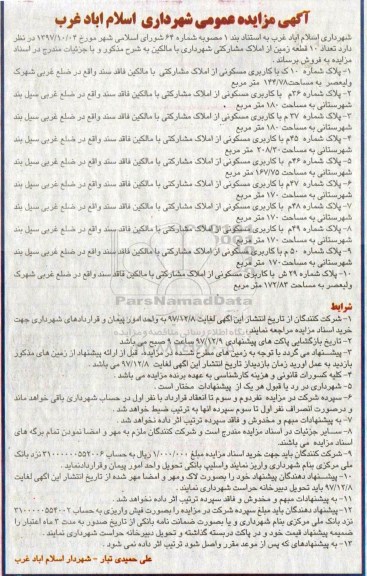 آگهی مزایده عمومی شهرداری اسلام اباد غرب
شهرداری اسلام اباد غرب به استناد بند ۱ مصوبه شماره ۶۴ شورای اسلامی شهر مورخ ۱۳۹۷/۱۰/۰۳ در نظر
دارد تعداد ۱۰ قطعه زمین از املاک مشارکتی شهرداری با مالکین به شرح مذکور و با جزئیات مندرج در اسناد
مزایده به فروش برساند .
۱- پلاک شماره ۱۰ ک با کاربری مسکونی از املاک مشارکتی با مالکین فاقد سند واقع در ضلع غربی شهرک
ولیعصر به مساحت ۱۴۴/۷۸ متر مربع
۲- پلاک شماره ۳۶م با کاربری مسکونی از املاک مشارکتی با مالکین فاقد سند واقع در ضلع غربی سیل بند
شهرستانی به مساحت ۱۸۰ متر مربع
۳- پلاک شماره ۳۷ م با کاربری مسکونی از املاک مشارکتی با مالکین فاقد سند واقع در ضلع غربی سیل بند
شهرستانی به مساحت ۱۸۰ متر مربع
۴- پلاک شماره ۴۵م با کاربری مسکونی از املاک مشارکتی با مالکین فاقد سند واقع در ضلع غربی سیل بند
شهرستانی به مساحت ۲۰۸/۳۰ متر مربع
۵- پلاک شماره ۴۶م با کاربری مسکونی از املاک مشارکتی با مالکین فاقد سند واقع در ضلع غربی سیل بند
شهرستانی به مساحت ۱۶۷/۷۵ متر مربع
۶- پلاک شماره ۴۷م با کاربری مسکونی از املاک مشارکتی با مالکین فاقد سند واقع در ضلع غربی سیل بند
شهرستانی به مساحت ۱۷۰ متر مربع
۷- پلاک شماره ۴۸م با کاربری مسکونی از املاک مشارکتی با مالکین فاقد سند واقع در ضلع غربی سیل بند
شهرستانی به مساحت ۱۷۰ متر مربع
۸- پلاک شماره ۴۹م با کاربری مسکونی از املاک مشارکتی با مالکین فاقد سند واقع در ضلع غربی سیل بند
شهرستانی به مساحت ۱۷۰ متر مربع
۹- پلاک شماره ۵۰م با کاربری مسکونی از املاک مشارکتی با مالکین فاقد سند واقع در ضلع غربی سیل بند
شهرستانی به مساحت ۱۷۰ متر مربع
۱۰- پلاک شماره ۲۹ ش با کاربری مسکونی از املاک مشارکتی با مالکین فاقد سند واقع در ضلع غربی شهرک
ولیعصر به مساحت ۱۷۲/۸۳ متر مربع
ParsNamadData
شرایط
۱- شرکت کنندگان از تاریخ انتشار این اگهی لغایت ۹۷/۱۲/۸ به واحد امور پیمان و قراردادهای شهرداری جهت
خرید اسناد مزایده مراجعه نمایند
۲- تاریخ بازگشایی پاکت های پیشنهادی ۹۷/۱۲/۹ ساعت ۹ صبح می باشد
۳- پیشنهاد می گردد با توجه به زمین های مطرح شده در مزایده، قبل از ارائه پیشنهاد از زمین های مذکور
بازدید به عمل اورید زمان بازدید از تاریخ انتشار این آگهی لغایت ۹۷/۱۲/۸ می باشد
۴- کلیه کسورات قانونی و هزینه کارشناسی به عهده برنده مزایده می باشد .
۵- شهرداری در رد یا قبول هر یک از پیشنهادات مختار است .
۶- سپرده شرکت در مزایده نفردوم و سوم تا انعقاد قرارداد با نفر اول در حساب شهرداری باقی خواهد ماند
و درصورت انصراف نفر اول تا سوم سپرده انها به ترتیب ضبط خواهد شد .
۷- به پیشنهادات مبهم و مخدوش و فاقد سپرده ترتیب اثر داده نخواهد شد .
۸- سایر جزئیات در اسناد مزایده مندرج است و شرکت کنندگان ملزم به مهر و امضا نمودن تمام برگه های
اسناد مزایده می باشند.
۹- شرکت کنندگان باید جهت خرید اسناد مزایده مبلغ ۱/۰۰۰/۰۰۰ ریال به حساب ۳۱۰۰۰۰۰۵۵۲۰۰۶ نزد بانک
ملی مرکزی بنام شهرداری واریز نمایند واسلیپ بانکی تحویل واحد امور پیمان وقراردادنماید .
۱۰- پیشنهاد دهندگان پیشنهاد خود را بصورت لاک ومهر و امضا مهر شده از تاریخ انتشار این اگهی لغایت
۹۷/۱۲/۸ باید تحویل دبیرخانه حراست شهرداری نمایند .
۱۱- به پیشنهادات مبهم و مخدوش و فاقد سپرده ترتیب اثر داده نخواهد شد .
۱۲- پیشنهاد دهندگان باید مبلغ سپرده شرکت در مزایده را بصورت فیش واریزی به حساب ۳۱۰۰۰۰۰۵۵۴۰۰۲
نزد بانک ملی مرکزی بنام شهرداری و یا بصورت ضمانت نامه بانکی از تاریخ صدور به مدت ۳ ماه اعتبار را
ضمیمه پیشنهاد قیمت خود و در پاکت دربسته گذاشته و تحویل دبیرخانه حراست شهرداری نمایند .
۱۳- به پیشنهادهای که پس از موعد مقرر واصل شود ترتیب اثر داده نمی شود .
علی حمیدی تبار - شهردار اسلام اباد غرب